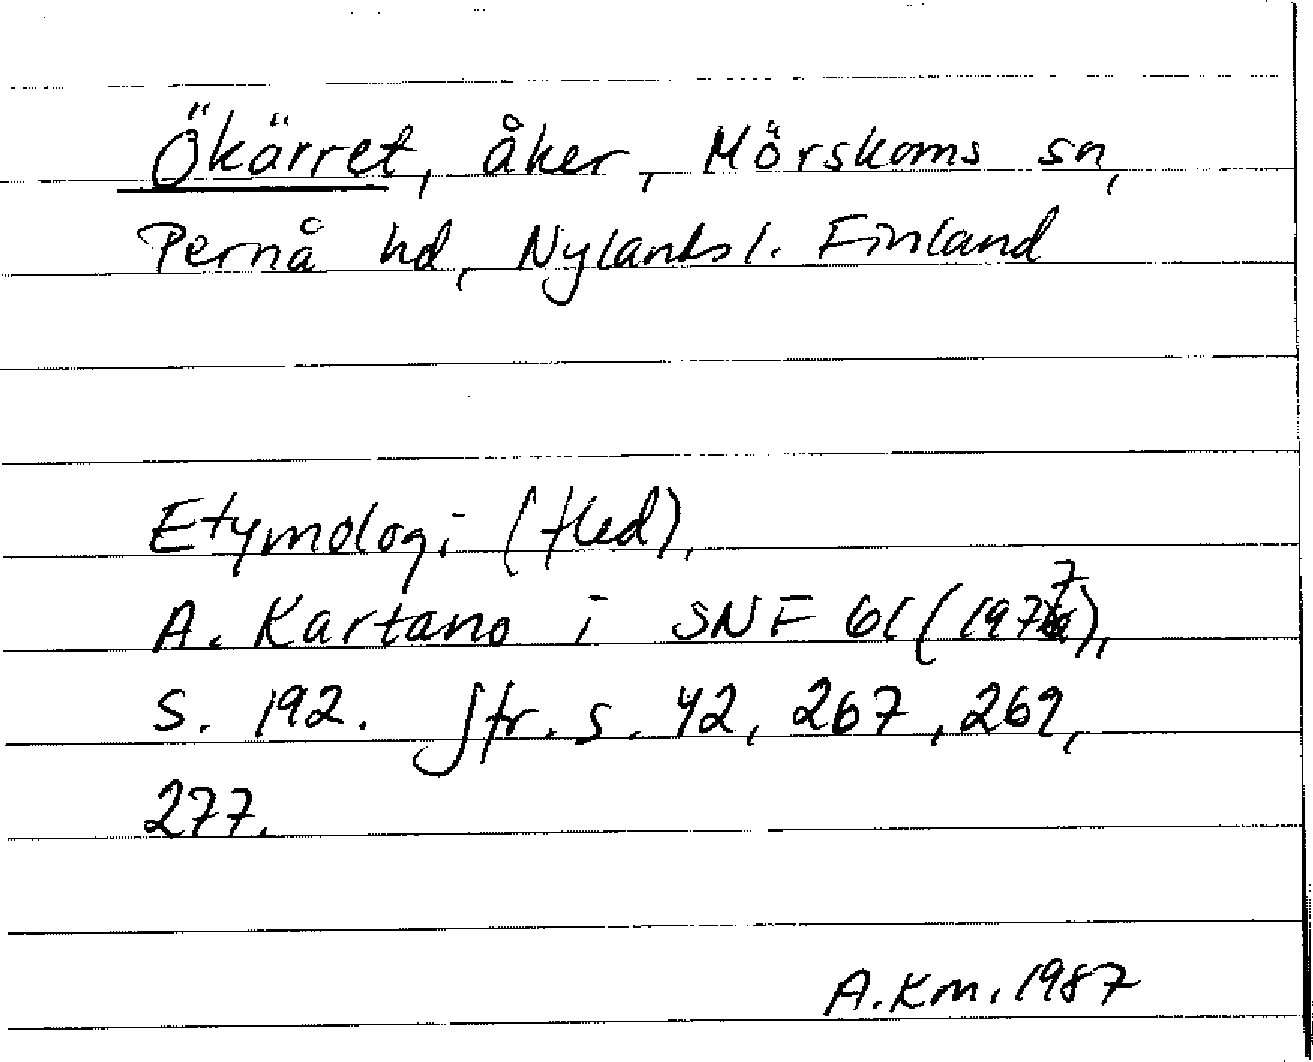 Ökärret, åker, Mörskoms sn,
Pernå hd, Nylands l. Finland
Etymologi (fled),
A. Kartano i SNF 61 (1977),
s. 192. Jfr. s. 42, 267, 269,
277.
A.Km. 1987